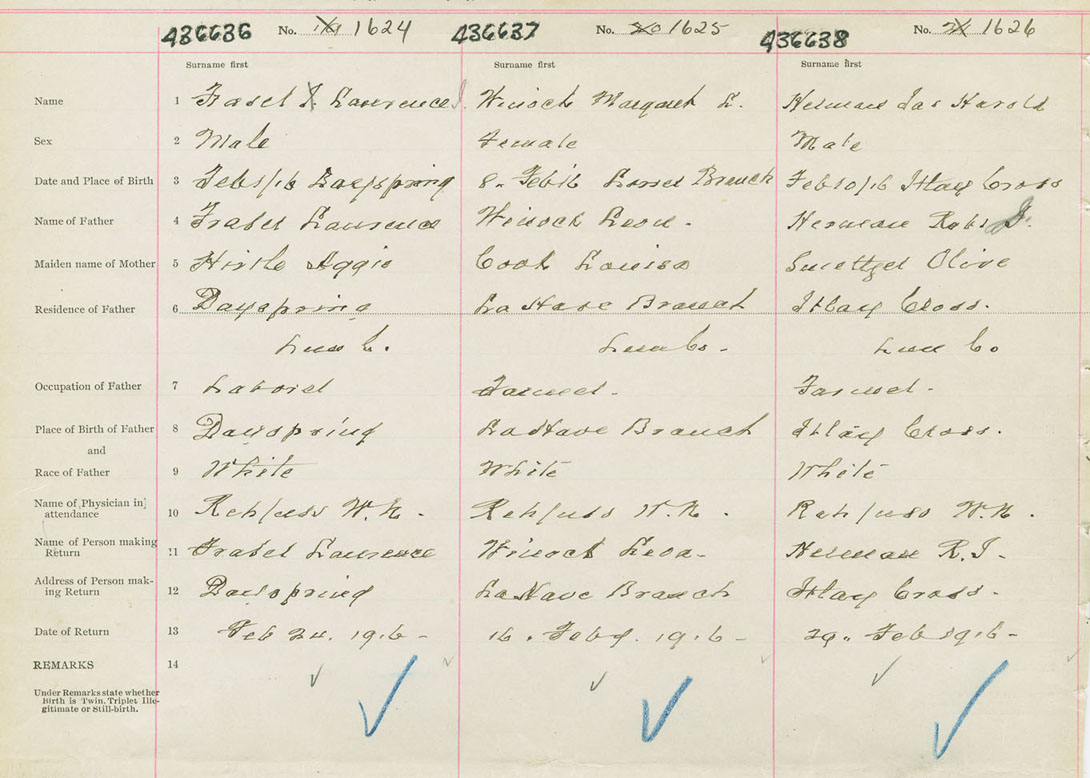 436636 No. 1624 436637 No. 1625 436638 No. 1626
Surname first Surname first Surname first
Name 1 Lawrence Margaret L. Herman Jas Harold
Sex 2 Male Female Male
Date and Place of Birth 3 Feb Dayspring 8. Feb/16 Branch Feb 10/16 Italy Cross
Name of Father 4 Lawrence Leon. Herman Robt J.
Maiden name of Mother 5 Hirtle Aggie Cook Louisa Olive
Residence of Father 6 Dayspring La Have Branch Italy Cross.
Lun C. Lun Co. Lun Co
Occupation of Father 7 Labore Farmer. Farmer.
Place of Birth of Father 8 Dayspring LaHave Branch Italy Cross.
and
Race of Father 9 White White White
Name of Physician in 10 Rehfuss W. H. Rehfuss W. H. Rehfuss W. H.
attendance
Name of Person making 11 Lawrence Herman R. J.
Return
Address of Person mak- 12 Dayspring LaHave Branch Italy Cross.
ing Return
Date of Return 13 Feb 24. 1916 - 16. 1916 - 29. Feb 1916 -
REMARKS 14
Under Remarks state whether
Birth is Twin, Triplet Ille-
gitimate or Still-birth.